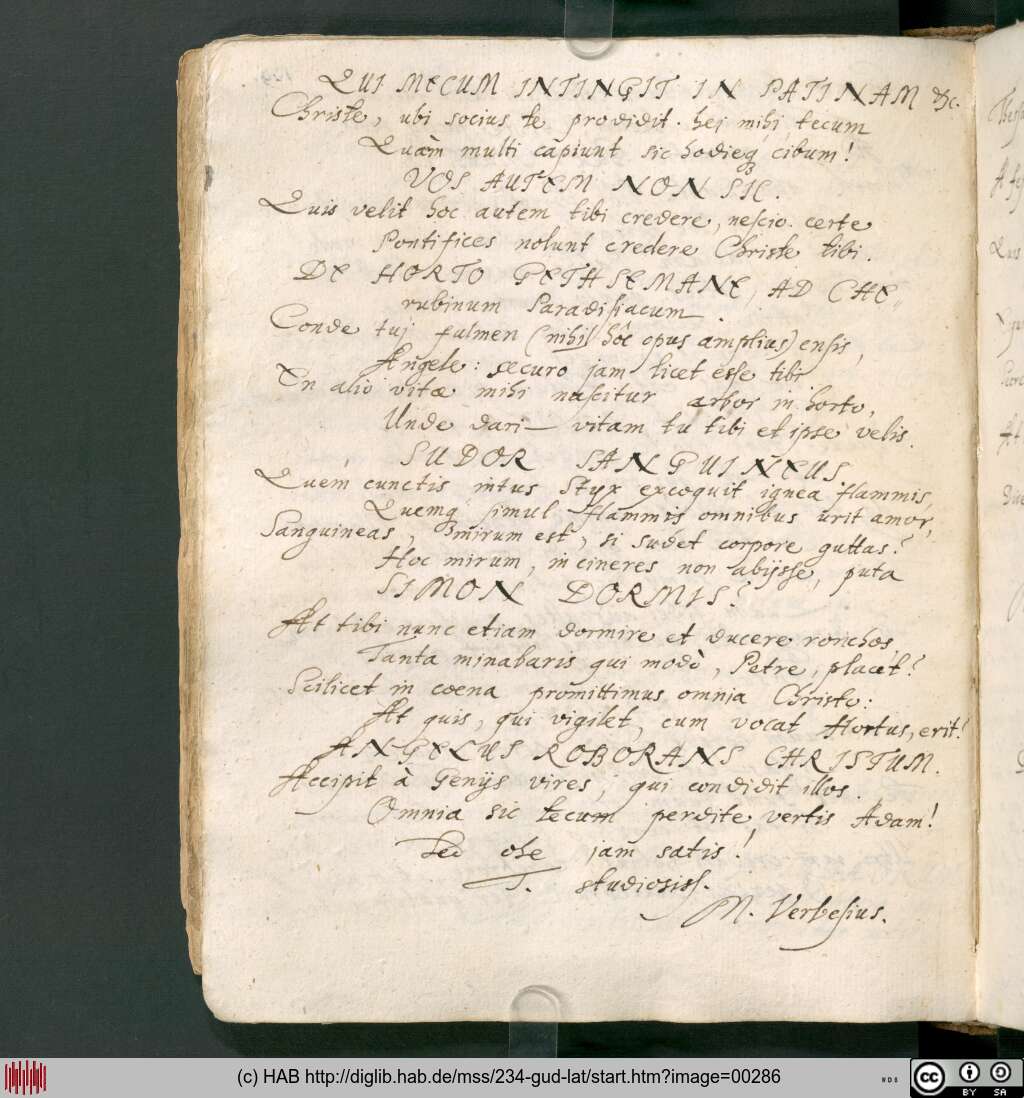 QUI MECUM INTINGIT IN PATINAM &c.
Christe, ubi socius te prodidit. hej mihi, tecum
Quàm multi capiunt sic hodieq; cibum!
VOS AUTEM NON SIC.
Quis velit hoc autem tibi credere, nescio. certe
Pontifices nolunt credere Christe tibi.
DE HORTO GETHSEMANE, AD CHE„
rubinum Paradisiacum.
Conde tuj fulmen (nihil hôc opus amplius) ensis,
Angele: securo jam licet esse tibi
En alio vitæ mihi nascitur arbor in horto,
Unde dari vitam tu tibi et ipse velis.
SUDOR SANGUINEUS.
Quem cunctis intus Styx excoquit ignea flammis,
Quemq; simul flammis omnibus urit amor,
Sanguineas, mirum est, si sudet corpore guttas?
Hoc mirum, in cineres non abijsse, puta
SIMON DORMIS?
At tibi nunc etiam dormire et ducere ronchos,
Tanta minabaris qui modò, Petre, placet?
Scilicet in coena promittimus omnia Christo:
At quis, qui vigilet, cum vocat Hortus, erit?
ANGELUS ROBORANS CHRISTUM.
Accipit à Genijs vires, qui condidit illos.
Omnia sic tecum perdite vertis Adam!
Sed ohe jam satis!
T. studiosiss.
M. Verbesius.
(c) HAB http://diglib.hab.de/mss/234-gud-lat/start.htm?image=00286
cc BY SA